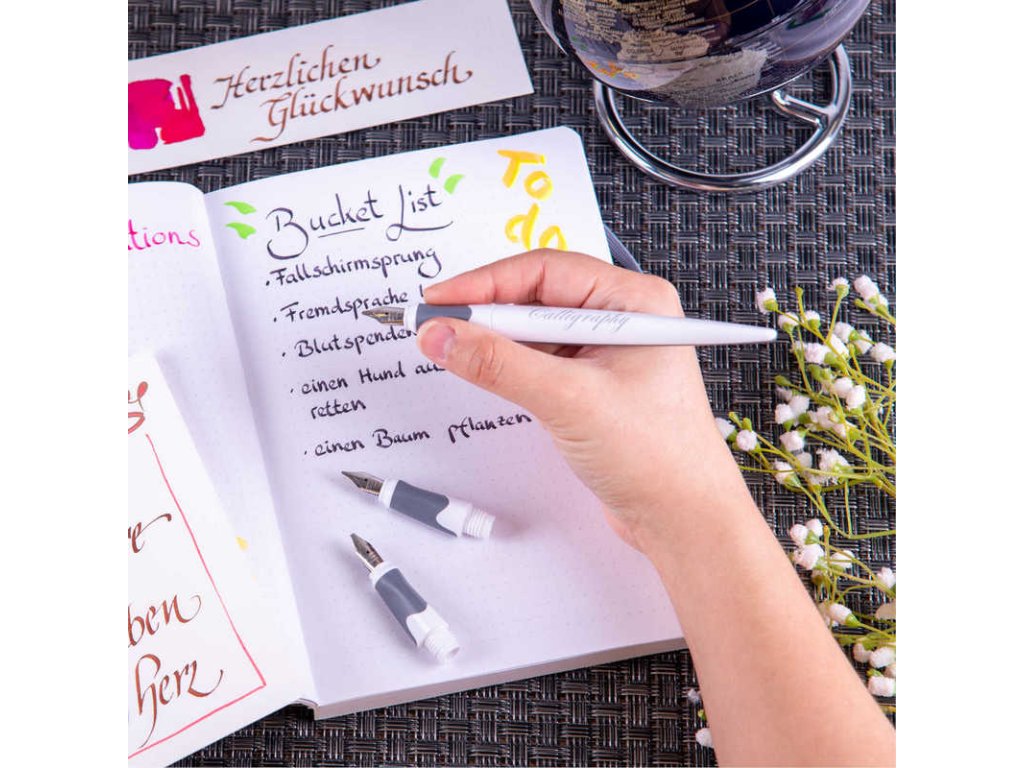 Herzlichen
Glückwunsch
Bucket List
To
do
· Fallschirmsprung
· Fremdsprache
· Blutspenden
· einen Hund
retten
· einen Baum pflanzen
Calligraphy
Herz